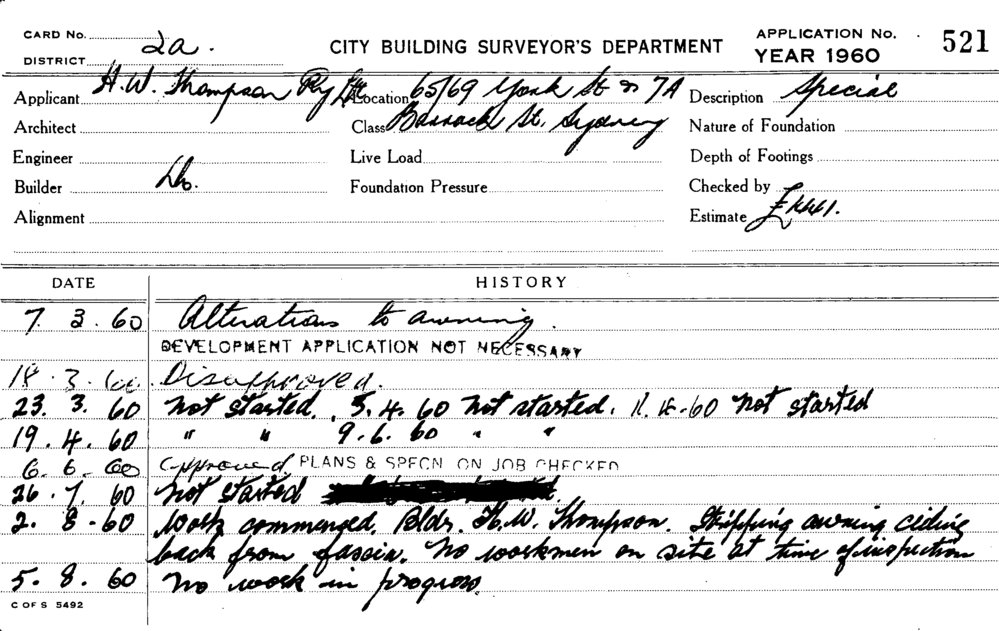 CARD No.
DISTRICT 2a.
CITY BUILDING SURVEYOR'S DEPARTMENT
APPLICATION No. 521
YEAR 1960
Applicant H.W. Thompson Pty Ltd
Location 65/69 York St & 7A
Description Special
Architect
Class Barrack St. Sydney
Nature of Foundation
Engineer
Live Load
Depth of Footings
Builder Do.
Foundation Pressure
Checked by
Alignment
Estimate
DATE
HISTORY
7. 3. 60 Alterations to awning.
DEVELOPMENT APPLICATION NOT NECESSARY
18. 3. 60. Disapproved.
23. 3. 60 Not started. 5. 4. 60 Not started. 11. 4. 60 Not started
19. 4. 60 " " 9. 6. 60 " "
6. 6. 60 Approved. PLANS & SPECN ON JOB CHECKED
26. 7. 60 Not started
2. 8. 60 Work commenced. Bldr. H.W. Thompson. Stripping awning ciding
back from fascia. No workmen on site at time of inspection
5. 8. 60 No work in progress.
C OF S 5492